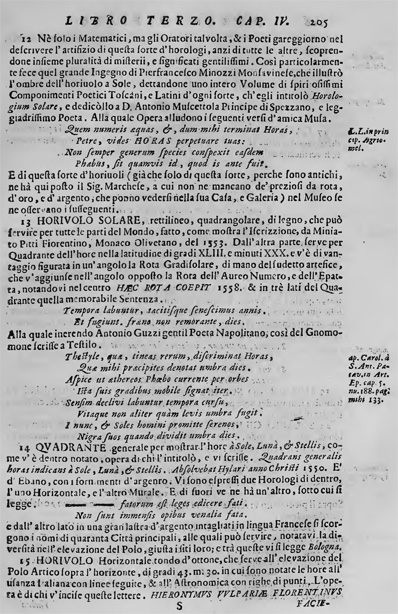 LIBRO TERZO. CAP. IV. 205
12 Nè solo i Matematici, ma gli Oratori talvolta, & i Poeti gareggiorno nel
descrivere l'artifizio di questa sorte d'horologi, anzi di tutte le altre, scopren-
done insieme pluralità di misterii, e significati gentilissimi. Così particolarmen-
te fece quel grande Ingegno di Pierfrancesco Minozzi Monsavinese, che illustrò
l'ombre dell'horiuolo a Sole, dettandone uno intero Volume di spiri osissimi
Componimenti Poetici Toscani, e Latini d'ogni sorte, ch'egli intitolò Horolo-
gium Solare, e dedicòllo a D. Antonio Muscettola Principe di Spezzano, e leg-
giadrissimo Poeta. Alla quale Opera alludono i seguenti versi d'amica Musa.
Quem numeris aquas, &, dum mihi terminat Horas,
Petre, vides HORAS perpetuare tuas:
Non semper generum species conspexit easdem
Phœbus, sit quamvis id, quod is ante fuit.
L. L. in prin
cip. Agrio-
mel.
E di questa sorte d'horiuoli (già che solo di questa sorte, perche sono antichi,
ne hà quì posto il Sig. Marchese, a cui non ne mancano de' preziosi da rota,
d'oro, e d'argento, che ponno vedersi nella sua Casa, e Galeria) nel Museo se
ne osservano i susseguenti.
13 HORIVOLO SOLARE, rettilineo, quadrangolare, di legno, che può
servire per tutte le parti del Mondo, fatto, come mostra l'Iscrizione, da Minia-
to Pitti Fiorentino, Monaco Olivetano, del 1553. Dall'altra parte serve per
Quadrante dell'hore nella latitudine di gradi XLIII. e minuti XXX. e v'è di van-
taggio figurata in un'angolo la Rota Gradisolare, di mano del sudetto artefice,
che v'aggiunse nell'angolo opposto la Rota dell'Aureo Numero, e dell'Epat-
ta, notandovi nel centro HÆC ROTA COEPIT 1558. & in trè lati del Qua-
drante quella memorabile Sentenza.
Tempora labuntur, tacitisque senescimus annis.
Et fugiunt, fræno non remorante, dies.
Alla quale inerendo Antonio Guzzi gentil Poeta Napolitano, così del Gnomo-
mone scrisse a Testilo.
Thestyle, quæ, tineas rerum, discriminat Horas,
Quæ mihi præcipites denotas umbra dies.
Aspice ut æthereos Phœbo currente per orbes
Ista suis gradibus mobile signat iter.
Sensim declivi labuntur tempora cursu,
Vitaque non aliter quàm levis umbra fugit.
I nunc, & Soles homini promitte serenos,
Nigra suos quando dividit umbra dies.
ap. Carol. à
S. Ant. Pa-
tavin. Art.
Ep. cap. 5.
nu. 188. pag.
mihi 133.
14 QUADRANTE generale per mostrar l'hore à Sole, Luna, & Stellis, co-
me v'è dentro notato, opera di chi l'intitolò, e vi scrisse. Quadrans generalis
horas indicans à Sole, Luna, & Stellis. Absolvebat Hylari anno Christi 1550. E'
d'Ebano, con i fornimenti d'argento. Vi sono espressi due Horologi di dentro,
l'uno Horizontale, e l'altro Murale. E di fuori ve ne hà un'altro, sotto cui si
legge. fatorum est leges edicere fati.
Non sunt immensis opibus venalia fata.
e dall'altro lato in una gran lastra d'argento intagliati in lingua Francese si scor-
gono i nomi di quaranta Città principali, alle quali può servire, notatavi la di-
versità nell'elevazione del Polo, giusta i siti loro; e trà queste vi si legge Bologna.
15 HORIVOLO Horizontale tondo d'ottone, che serve all'elevazione del
Polo Artico sopra l'horizonte, di gradi 43. m. 30. in cui sono notate le hore all'
usanza Italiana con linee seguite, & all'Astronomica con righe di punti. L'ope-
ra è di chi v'incise queste lettere. HIERONYMUS VULPARIÆ FLORENTINUS
S FACIE-